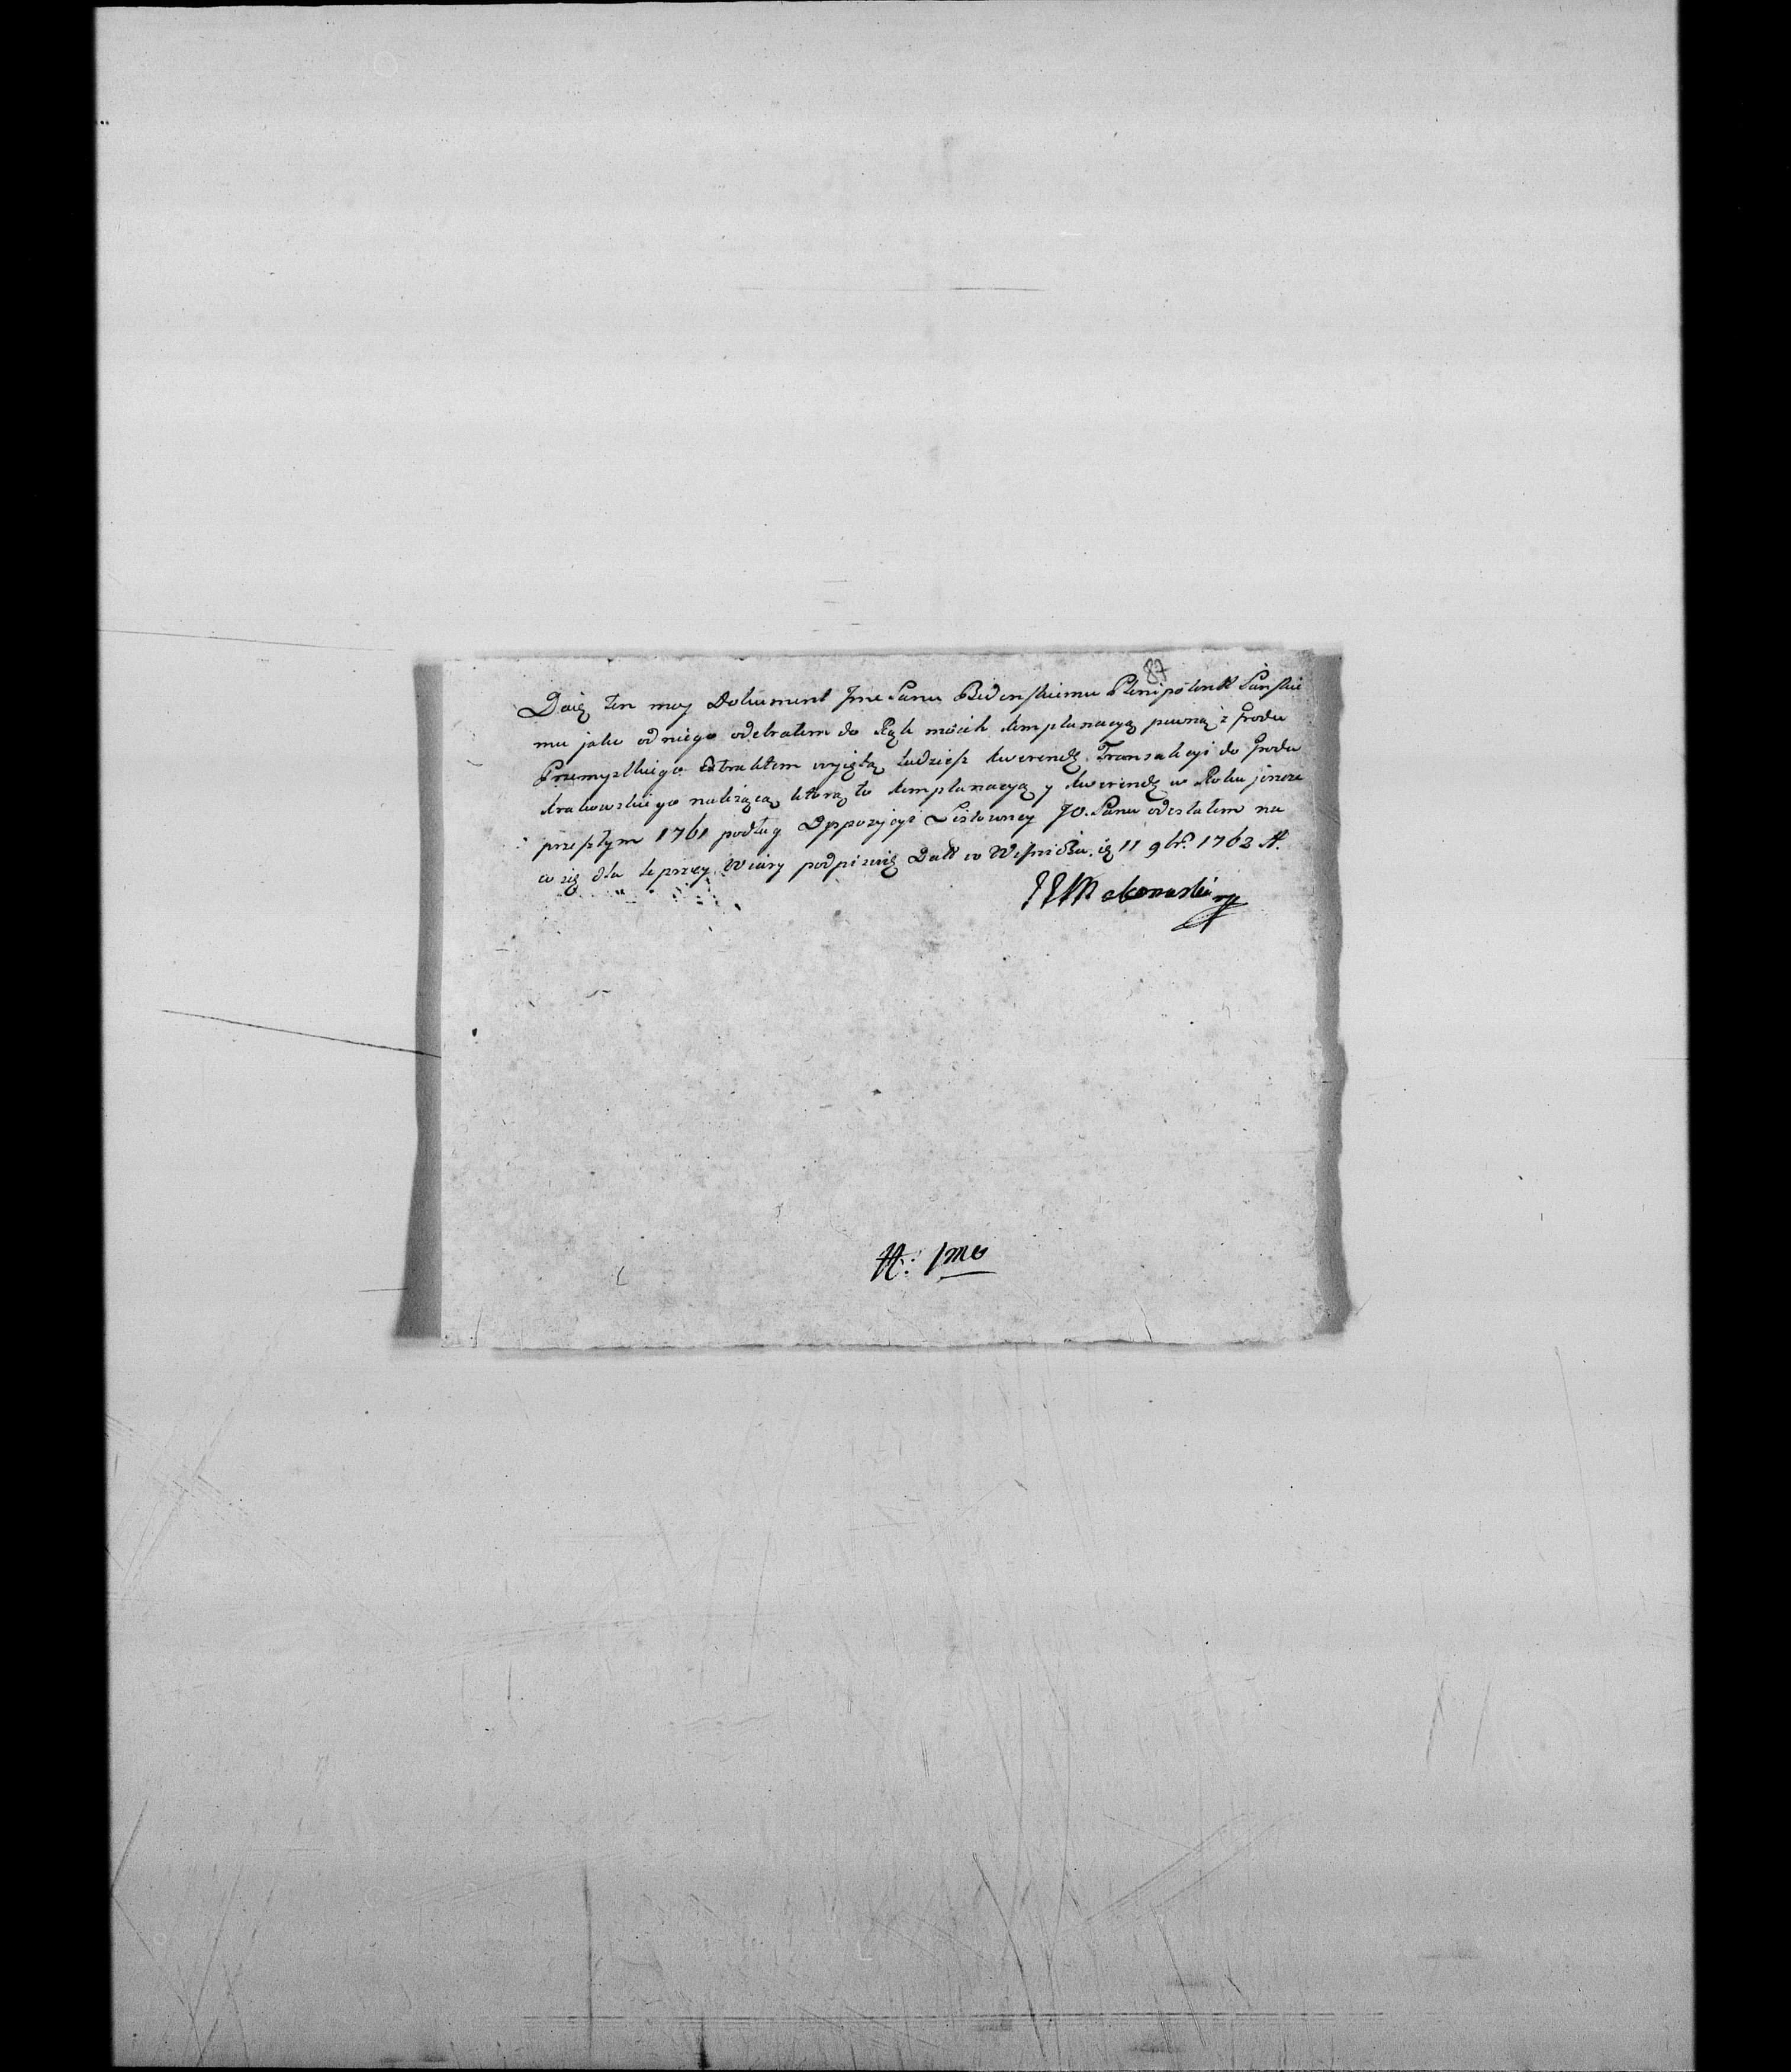 87
Daię ten moy Dokument Jme Panu Bidenskiemu Plenipotent Pańskie
mu jako od niego odebrałem do Rąk moich komplanacyą pewną z Grodu
Przemyslkiego Extraktem wyiętą tudziesz kwerendę Transakcyi do Grodu
krakowskiego należącą którą to komplanacyą y kwerendę w Roku jeszcze
przeszłym 1761 podług Dyspozycyi Listowney JO. Pana odesłałem na
co się dla lepszey Wiary podpisuię Datt w Wiśniczu 11 9br. 1762 A.
Makowski mp
N: 1mo